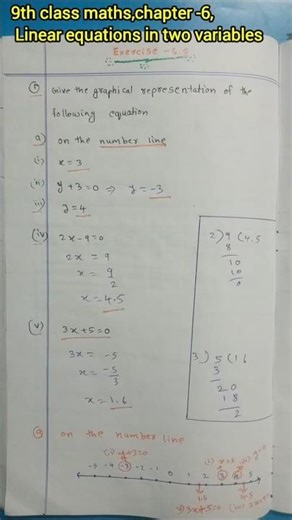 9th class maths,chapter -6,
Linear equations in two variables
Exercise - 6.3
Give the graphical representation of the
following equation
a) on the number line
(i) x = 3
(ii) y + 3 = 0 ⇒ y = -3
(iii) y = 4
(iv) 2x - 9 = 0
2x = 9
x = 9/2
x = 4.5
2) 9 (4.5
8
10
10
0
(v) 3x + 5 = 0
3x = -5
x = -5/3
x = 1.6
3) 5 (1 6
3
20
18
2
on the number line
(ii) y+3=0
-5 -4 -3 -2 -1 0 1 2 3 4 5